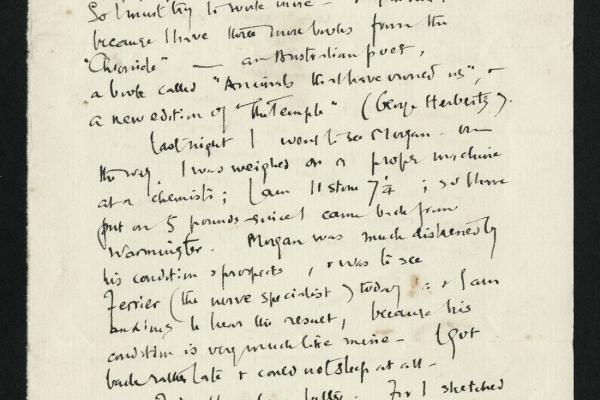 So I must try to work more —
because I have three more books from the
"Chronicle" — an Australian poet,
a book called "Animals that have owned us", &
a new edition of "The Temple" (George Herbert's).
Last night I went to see Morgan — on
the way, I was weighed on a proper machine
at a chemists; I am 11 stone 7 1/4; so I have
put on 5 pounds since I came back from
Warminster. Morgan was much distressed by
his condition & prospects, & was to see
Ferrier (the nerve specialist) today & I am
anxious to hear the result, because his
condition is very much like mine — I got
back rather late & could not sleep at all —
For I sketched